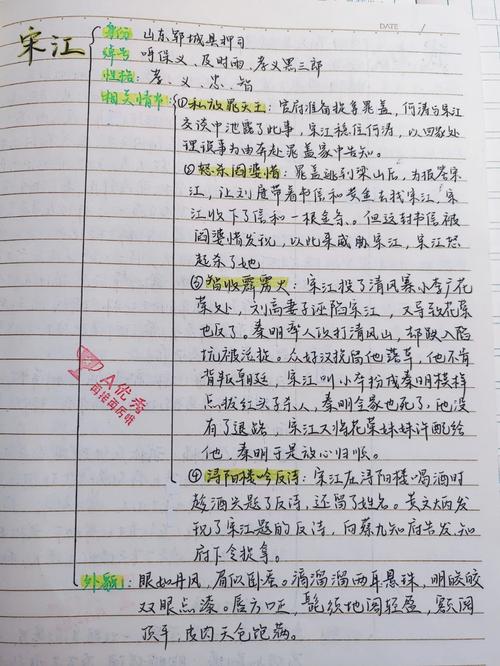 DATE
宋江
身份：山东郓城县押司
绰号：呼保义、及时雨、孝义黑三郎
性格：孝、义、忠、智
相关情节
①私放晁天王：官府准备捉拿晁盖，何涛与宋江
交谈中泄露了此事，宋江稳住何涛，以回家处
理误事为由奔赴晁盖家中告知。
②怒杀阎婆惜：晁盖逃到梁山后，为报答宋
江，让刘唐带着书信和黄金去找宋江，宋
江收下了信和一根金条。但这封书信被
阎婆惜发现，以此来威胁宋江，宋江怒
起杀了她
③智收霹雳火：宋江投了清风寨小李广花
荣处，刘高妻子诬陷宋江，又导致花荣
也反了。秦明率人误打清风山，却跌入陷
坑被活捉。众好汉说服他落草，他不肯
背叛朝廷，宋江叫小卒扮成秦明模样
点拨红头子杀人，秦明全家也死了，他没
有了退路，宋江又将花荣妹妹许配给
他，秦明于是放心归顺。
④浔阳楼吟反诗：宋江在浔阳楼喝酒时
趁酒兴题了反诗，还留了姓名。黄文炳发
现了宋江题的反诗，向蔡九知府告发，知
府下令捉拿。
外貌：眼如丹凤，眉似卧蚕。滴溜溜两耳悬珠，明皎皎
双眼点漆。唇方口正，髭须地阁轻盈，额阔
顶平，皮肉天仓饱满。
A优秀
再接再厉哦